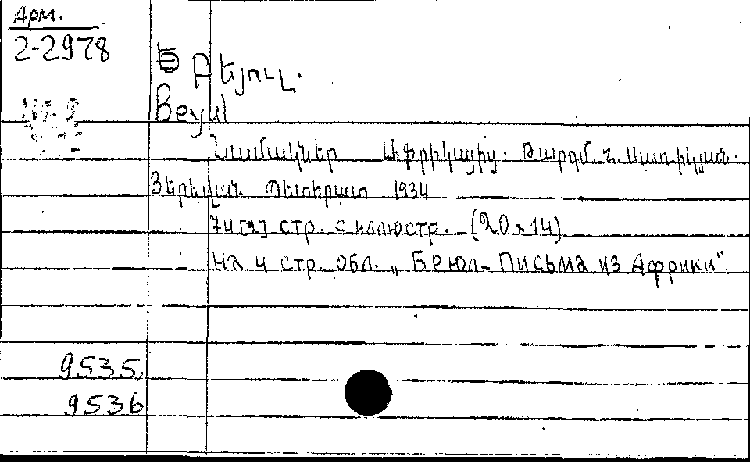 Арм.
2-2978
Բեյուլ.
Beyul
Նամակներ Աֆրիկայից. Թարգմ.
Յերեվան Պետհրատ 1934
74 стр. с иллюстр. (20x14)
На 4 стр. обл. „Беюл- Письма из Африки"
9535
9536